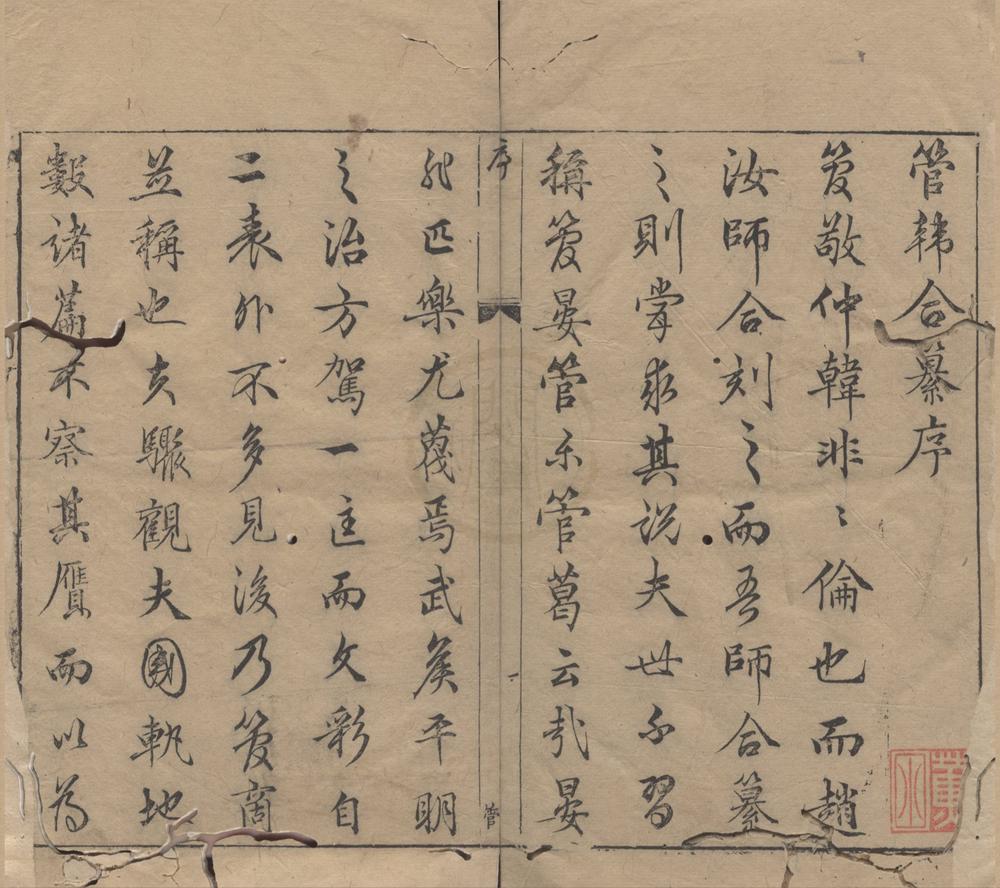 管韓合纂序
筦敬仲韓非〻倫也而趙
汝師合刻之而吾師合纂
之則嘗求其說夫世不習
稱筦晏管樂管葛云哉晏
序 一 管
非匹樂尤蔑焉武侯平明
之治方駕一匡而文彩自
二表外不多見後乃筦商
並稱也夫驟觀夫國軌地
數諸篇不察其贗而以為